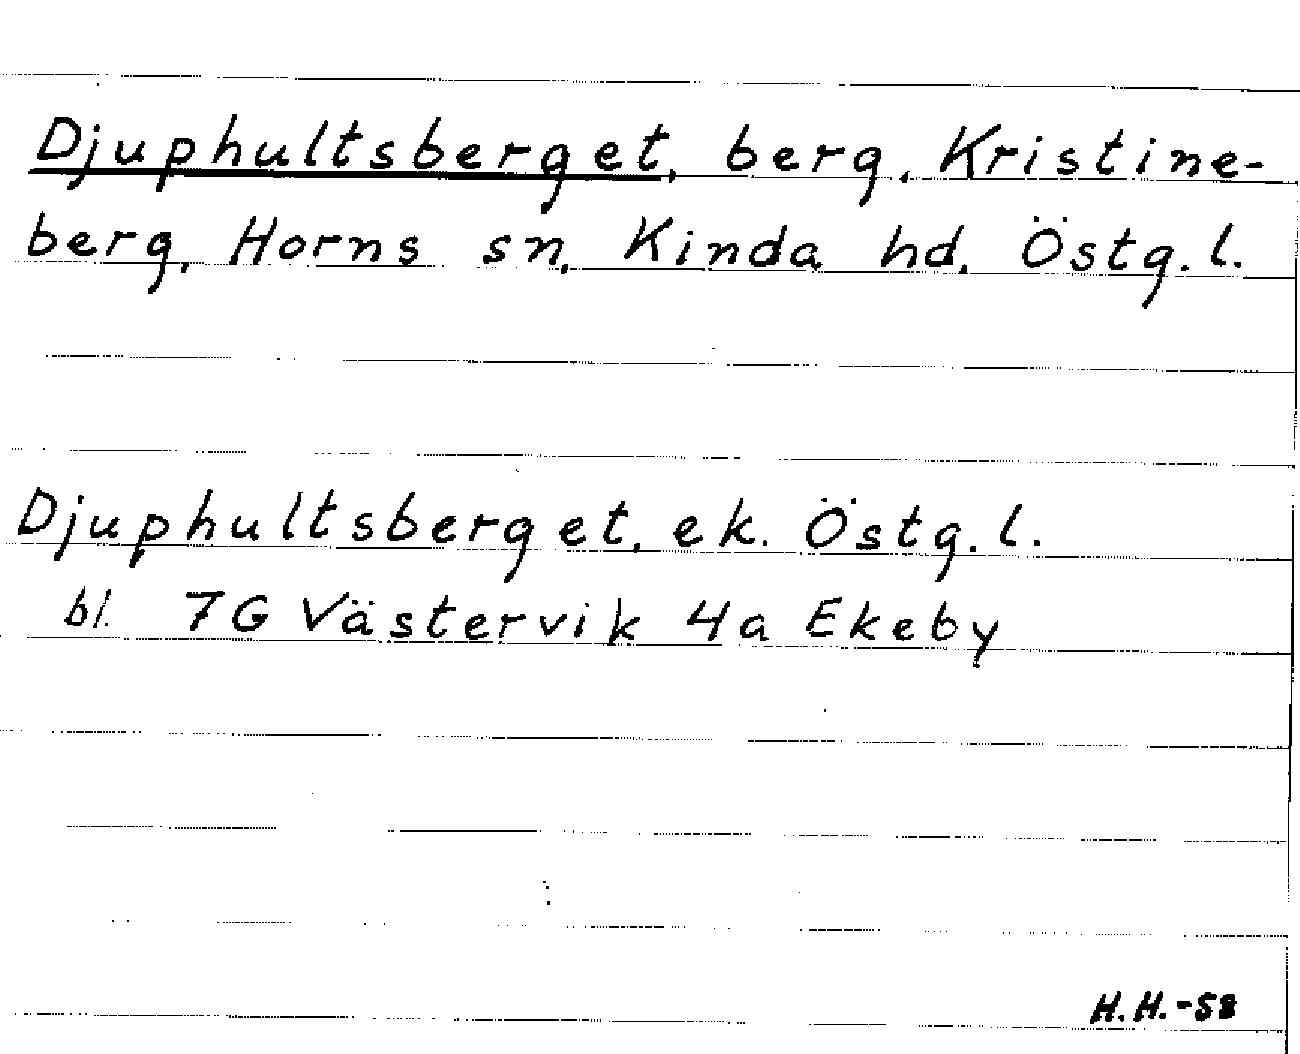 Djuphultsberget, berg, Kristine-
berg, Horns sn, Kinda hd, Östg.l.
Djuphultsberget, ek. Östg.l.
bl. 7G Västervik 4a Ekeby
H.H.-58